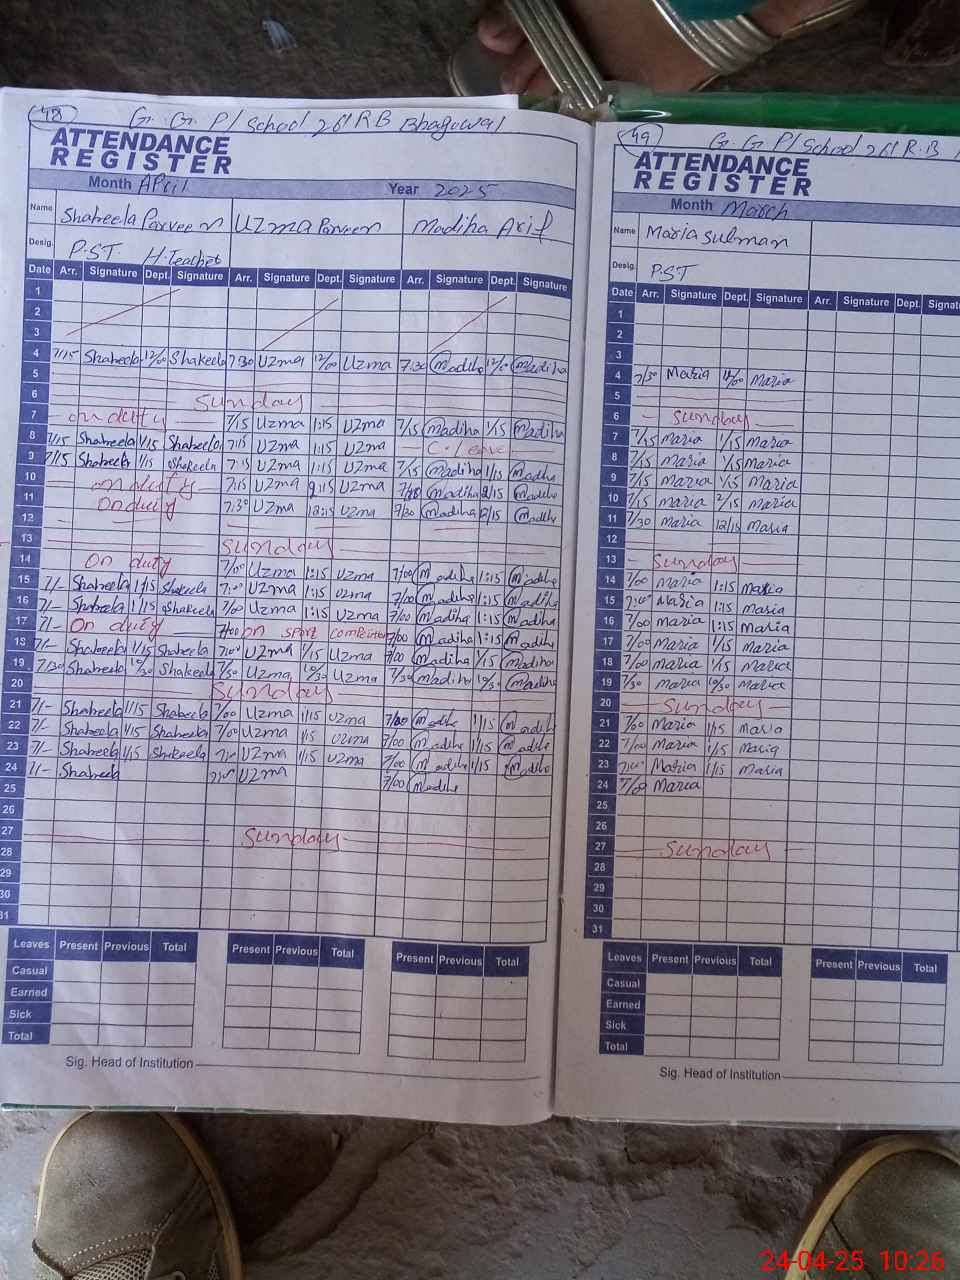 48 G. G. P/School 261 R B Bhagowal
ATTENDANCE
REGISTER
Month April Year 2025
Name Shaheela Parveen Uzma Parveen Madiha Arif
Desig. P.S.T. H.teacher
Date Arr. Signature Dept. Signature Arr. Signature Dept. Signature Arr. Signature Dept. Signature
1
2
3
4 7/15 Shaheela 12/00 Shakeela 7:30 Uzma 12/00 Uzma 7:30 Madiha 12/00 Madiha
5
6 Sunday
7 on duty 7/15 Uzma 1:15 Uzma 7/15 Madiha 1/15 Madiha
8 7/15 Shaheela 1/15 Shaheela 7:15 Uzma 1:15 Uzma C. Leave
9 7/15 Shaheela 1/15 Shakeela 7:15 Uzma 1:15 Uzma 7/15 Madiha 1/15 Madiha
10 on duty 7:15 Uzma 2:15 Uzma Madiha 2/15 Madiha
11 On duty 7:30 Uzma 12:15 Uzma 7/30 Madiha 12/15 Madiha
12
13 Sunday
14 On duty 7/00 Uzma 1:15 Uzma 7/00 Madiha 1:15 Madiha
15 7/- Shaheela 1/15 Shakeela 7:00 Uzma 1:15 Uzma 7/00 Madiha 1:15 Madiha
16 7/- Shaheela 1/15 Shakeela 7/00 Uzma 1:15 Uzma 7/00 Madiha 1:15 Madiha
17 7/- On duty 7/00 on sport competition 7/00 Madiha 1:15 Madiha
18 7/- Shaheela 1/15 Shaheela 7:00 Uzma 1/15 Uzma 7/00 Madiha 1/15 Madiha
19 7/30 Shaheela 10/30 Shakeela 7/30 Uzma 10/30 Uzma 7/30 Madiha 10/30 Madiha
20 Sunday
21 7/- Shaheela 1/15 Shaheela 7/00 Uzma 1/15 Uzma 7/00 Madiha 1/15 Madiha
22 7/- Shaheela 1/15 Shaheela 7/00 Uzma 1/15 Uzma 7/00 Madiha 1/15 Madiha
23 7/- Shaheela 1/15 Shakeela 7:00 Uzma 1/15 Uzma 7/00 Madiha 1/15 Madiha
24 7/- Shaheela 7:00 Uzma 7/00 Madiha
25
26
27 Sunday
28
29
30
31
Leaves Present Previous Total Present Previous Total Present Previous Total
Casual
Earned
Sick
Total
Sig. Head of Institution
49 G. G P/School 261 R.B
ATTENDANCE
REGISTER
Month March
Name Maria Suleman
Desig. PST
Date Arr. Signature Dept. Signature Arr. Signature Dept.
1
2
3
4 7/30 Maria 12/00 Maria
5
6 Sunday
7 7/15 Maria 1/15 Maria
8 7/15 Maria 1/15 Maria
9 7/15 Maria 1/15 Maria
10 7/15 Maria 2/15 Maria
11 7/30 Maria 12/15 Maria
12
13 Sunday
14 7/00 Maria 1:15 Maria
15 7:00 Maria 1:15 Maria
16 7/00 Maria 1:15 Maria
17 7/00 Maria 1/15 Maria
18 7/00 Maria 1/15 Maria
19 7/30 Maria 10/30 Maria
20 Sunday
21 7/00 Maria 1/15 Maria
22 7/00 Maria 1/15 Maria
23 7:00 Maria 1/15 Maria
24 7/00 Maria
25
26
27 Sunday
28
29
30
31
Leaves Present Previous Total Present Previous Total
Casual
Earned
Sick
Total
Sig. Head of Institution
24-04-25 10:26